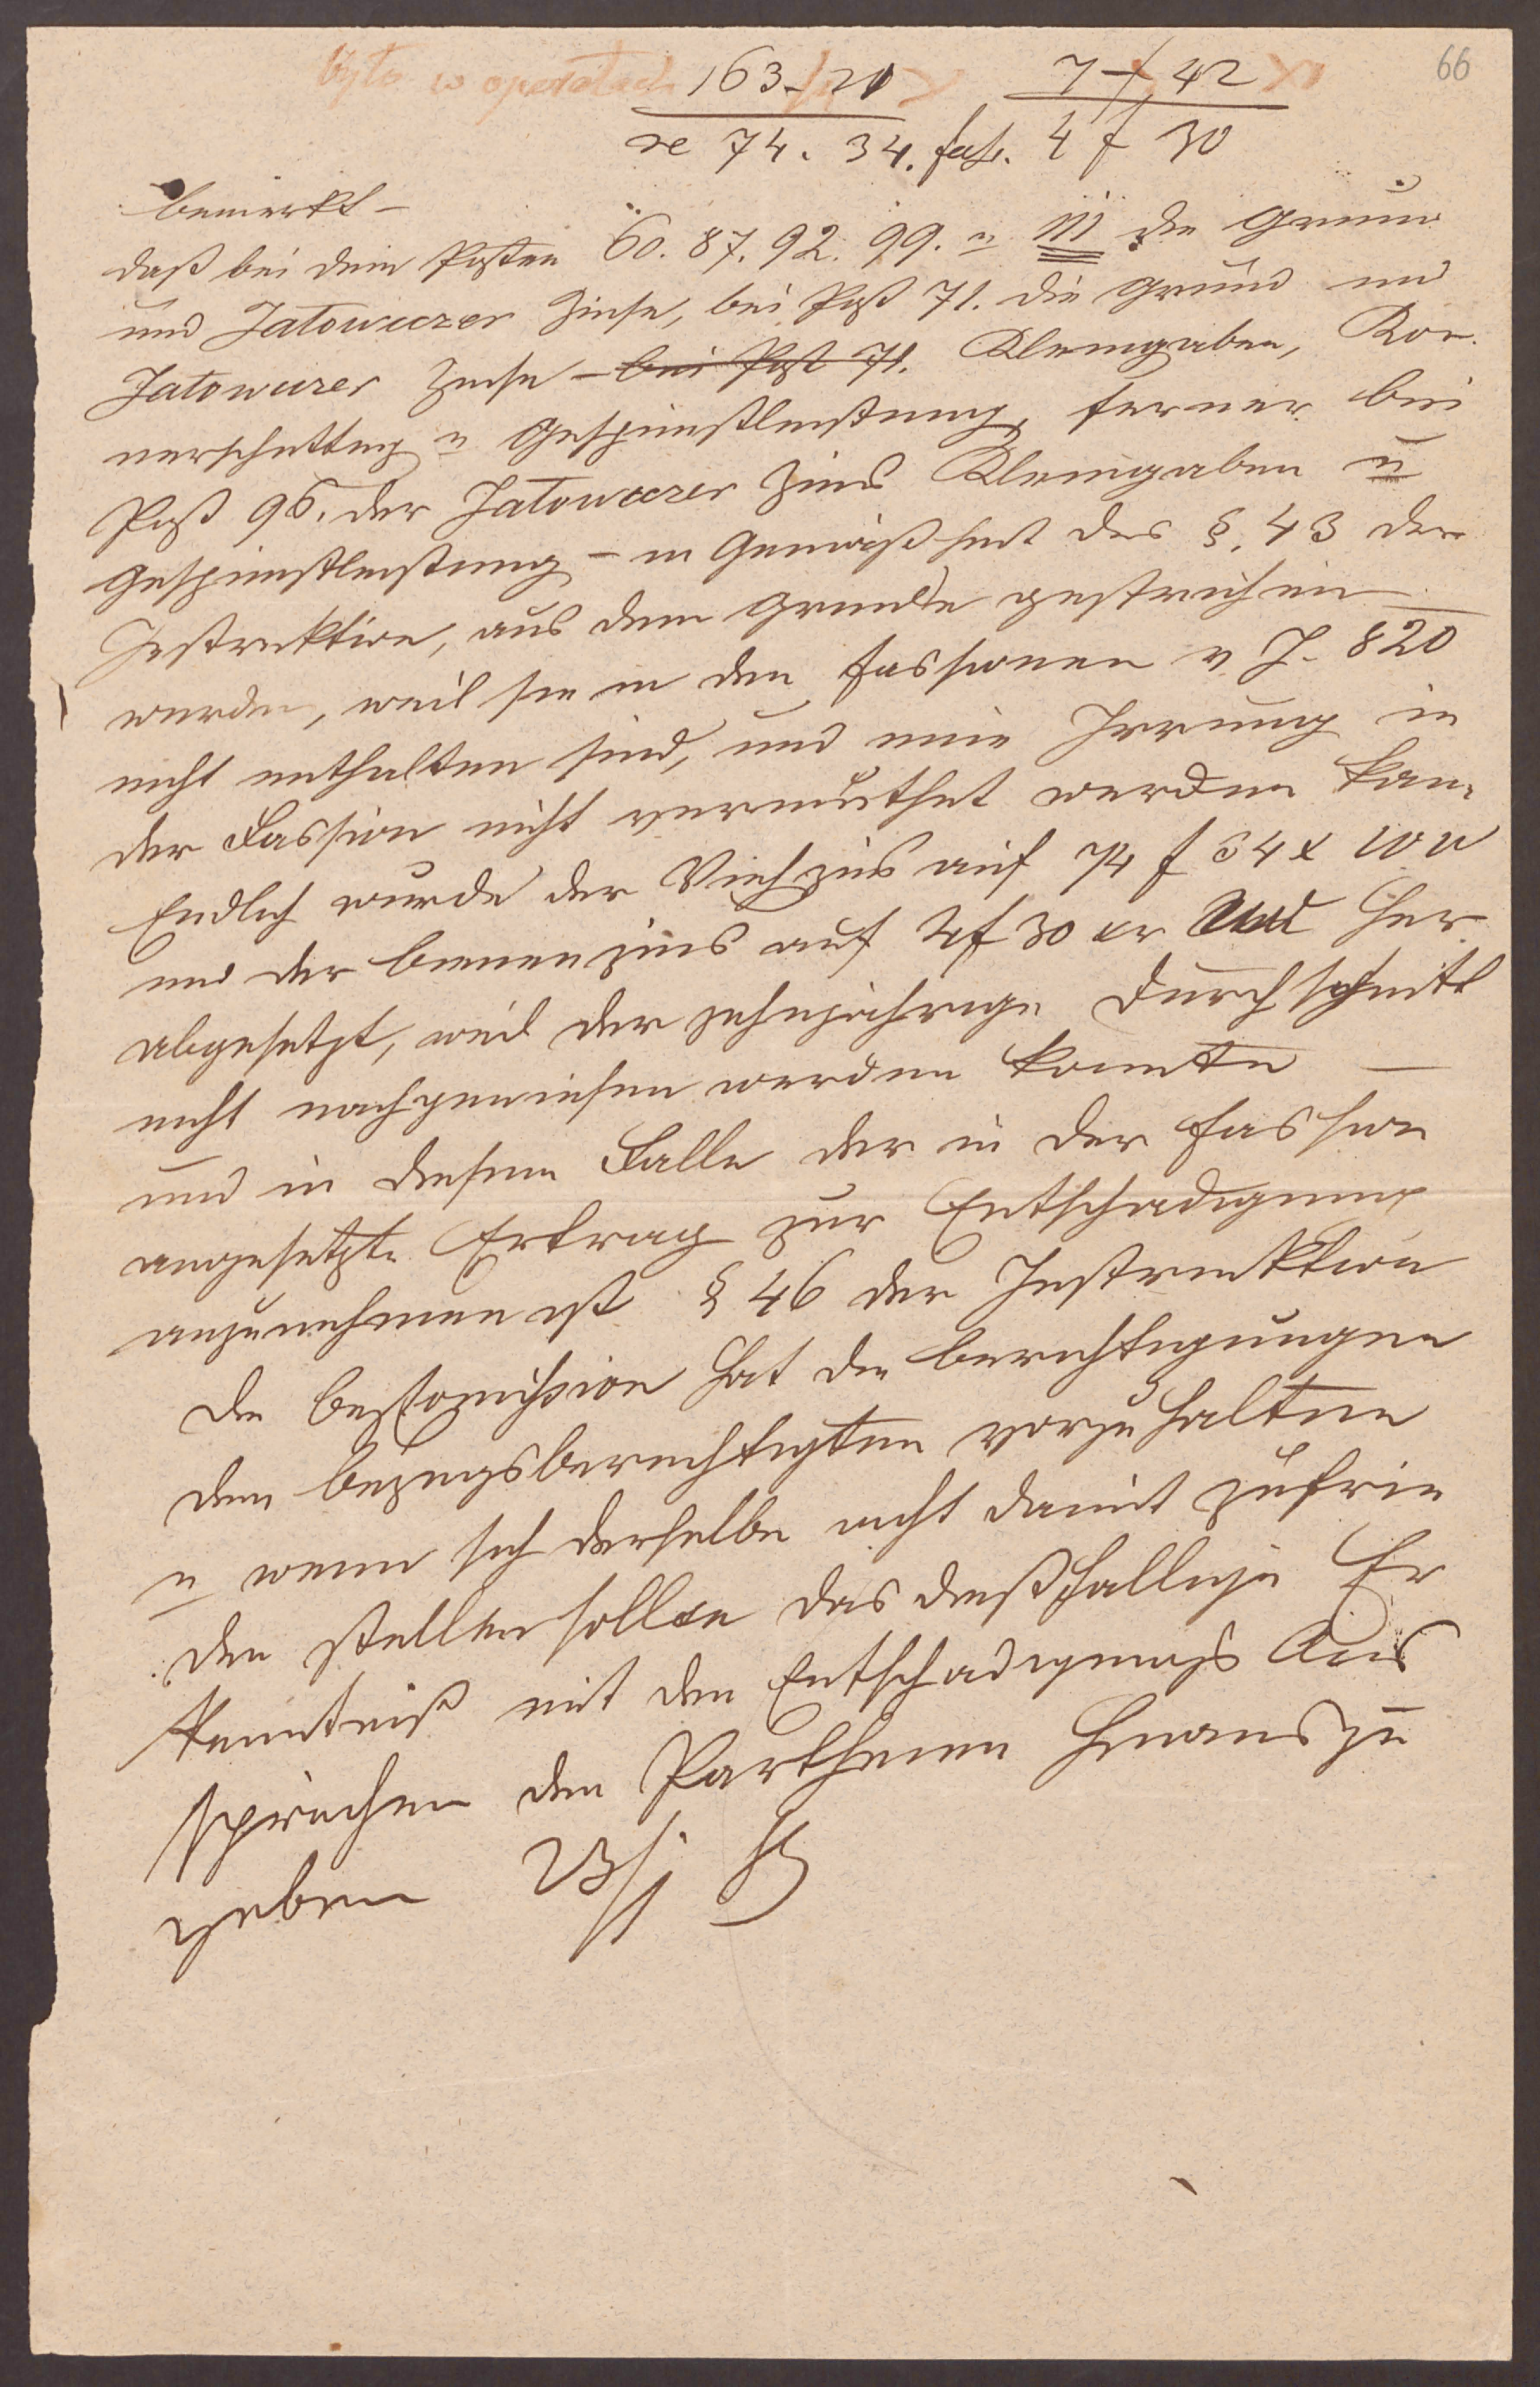 66
było w operatach 163 - 20 7 f 42 x
re 74. 34. fass. 4 f 30
bemerkt -
daß bei den Posten 60. 87. 92. 99. u 111 die Grund
und Jałowiczer Zinse, bei Post 71. die Grund und
Jałowiczer Zinse - bei Post 71. Kleingaben, Kör-
nerschüttung u Gespinnstleistung, ferner bei
Post 96. der Jałowiczer Zins Kleingaben u
Gespinnstleistung - in Gemäßheit des §. 43 der
Instruktion, aus dem Grunde gestrichen
wurden, weil sie in den Fassionen v J. 820
nicht enthalten sind, und eine Irrung in
der Fassion nicht vermuthet werden kan.
Endlich wurde der Viehzins auf 74 f 34 x WW
und der Bienenzins auf 4 f 30 xr her
abgesetzt, weil der zehnjährige Durchschnitt
nicht nachgewiesen werden konnte —
und in diesem Falle der in der Fassion
angesetzte Ertrag zur Entschädigung
anzunehmen ist § 46 der Instruktion
Die Bezkomission hat die Berichtigungen
dem Bezugsberechtigten vorzuhalten
u wenn sich derselbe nicht damit zufrie
den stellen sollte das dießfällige Er
kenntniß mit den Entschädigungs Aus
sprüchen den Partheien hinauszu
geben